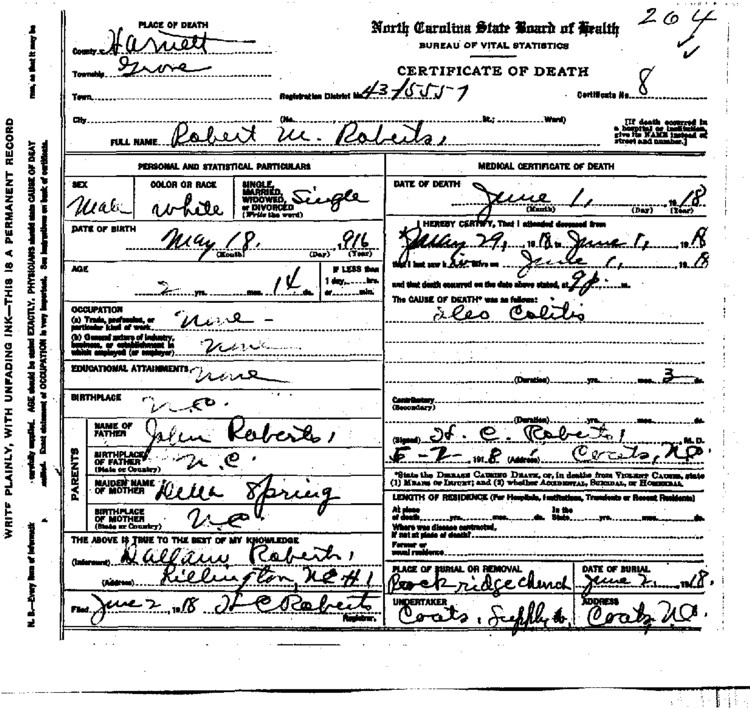 204
PLACE OF DEATH
North Carolina State Board of Health
BUREAU OF VITAL STATISTICS
CERTIFICATE OF DEATH
County Harnett
Township Grove
Town
Registration District No. 43/5557
Certificate No. 8
City (No. St.; Ward)
[If death occurred in a hospital or institution, give its NAME instead of street and number.]
FULL NAME Robert M. Roberts,
PERSONAL AND STATISTICAL PARTICULARS
SEX Male
COLOR OR RACE white
SINGLE, MARRIED, WIDOWED, OR DIVORCED (Write the word) Single
DATE OF BIRTH May 18. 916
(Month) (Day) (Year)
AGE 2 yrs. mos. 14 ds.
IF LESS than 1 day, hrs. or min.
OCCUPATION
(a) Trade, profession, or particular kind of work None -
(b) General nature of industry, business, or establishment in which employed (or employer) None
EDUCATIONAL ATTAINMENTS None
BIRTHPLACE N.C.
PARENTS
NAME OF FATHER John Roberts,
BIRTHPLACE OF FATHER (State or Country) N.C.
MAIDEN NAME OF MOTHER Della Spring
BIRTHPLACE OF MOTHER (State or Country) N.C.
THE ABOVE IS TRUE TO THE BEST OF MY KNOWLEDGE
(Informant) Roberts,
(Address) N.C. #1
Filed June 2, 1918 H C Roberts
Registrar.
MEDICAL CERTIFICATE OF DEATH
DATE OF DEATH June 1, 1918
(Month) (Day) (Year)
I HEREBY CERTIFY, That I attended deceased from
May 29, 1918 to June 1, 1918
that I last saw h alive on June 1, 1918
and that death occurred on the date above stated, at 9 p. m.
The CAUSE OF DEATH* was as follows:
Ileo Colitis
(Duration) yrs. mos. 3 ds.
Contributory (Secondary)
(Duration) yrs. mos. ds.
(Signed) H. C. Roberts, M. D.
1918 (Address) Coats, N.C.
*State the DISEASE CAUSING DEATH, or, in deaths from VIOLENT CAUSES, state (1) MEANS OF INJURY; and (2) whether ACCIDENTAL, SUICIDAL, OR HOMICIDAL
LENGTH OF RESIDENCE (For Hospitals, Institutions, Transients or Recent Residents)
At place of death yrs. mos. ds.
In the State yrs. mos. ds.
Where was disease contracted, if not at place of death?
Former or usual residence
PLACE OF BURIAL OR REMOVAL
church
DATE OF BURIAL
June 2, 1918.
UNDERTAKER
Coats, Supply Co,
ADDRESS
Coats, N.C.
WRITE PLAINLY, WITH UNFADING INK—THIS IS A PERMANENT RECORD
N. B.—Every item of informati carefully supplied. AGE should be stated EXACTLY. PHYSICIANS should state CAUSE OF DEAT
so that it may be Exact statement of OCCUPATION is very important. See instructions on back of certificate.